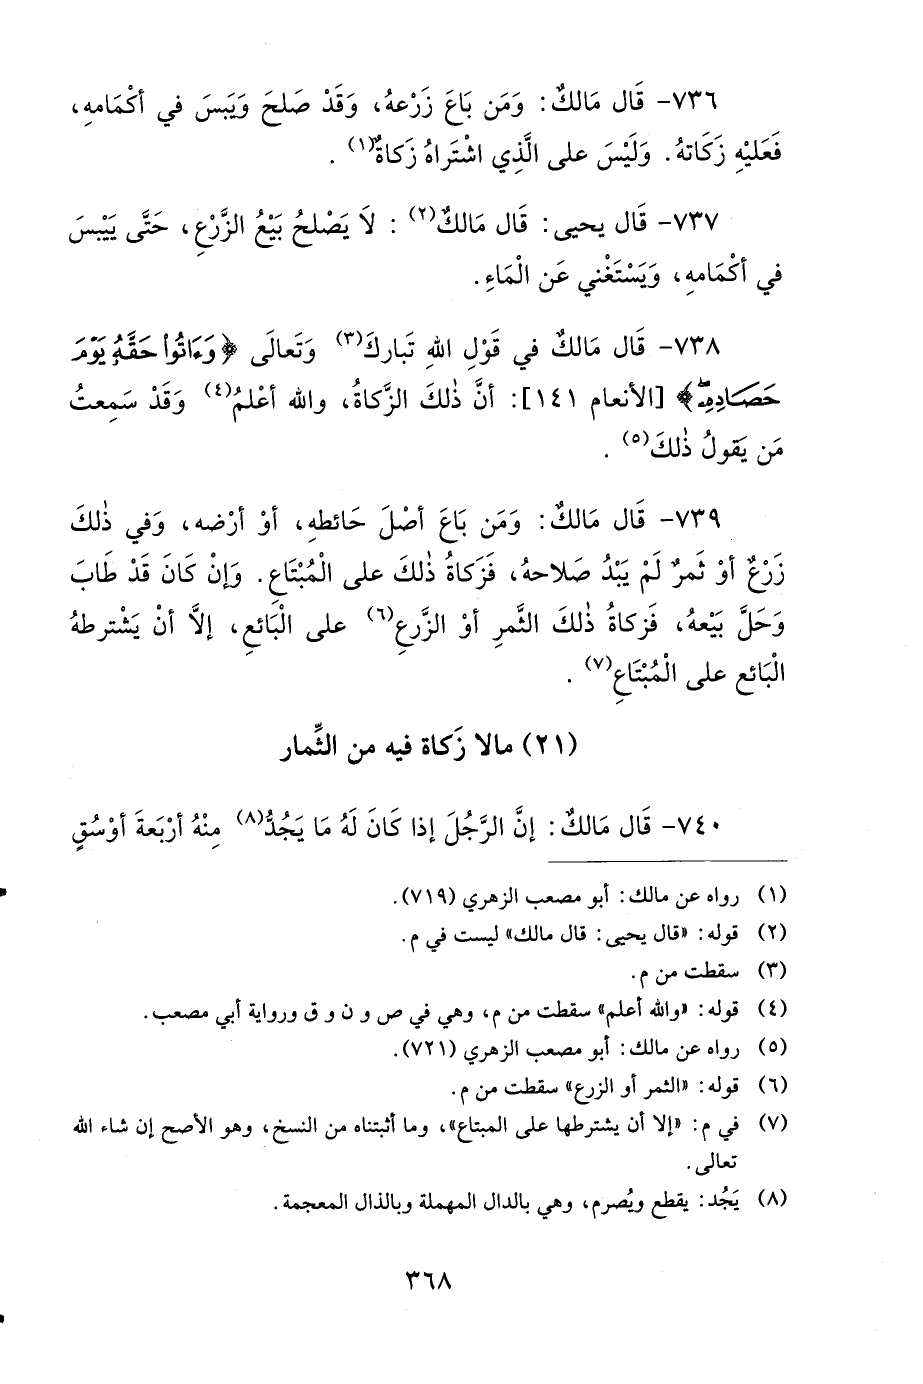 ٧٣٦- قَال مَالكٌ: وَمَن بَاعَ زَرْعهُ، وَقَدْ صَلحَ وَيَبسَ في أكْمَامهِ،
فَعَليْهِ زَكَاتهُ. وَلَيْسَ على الَّذِي اشْتَراهُ زَكاةٌ(١).
٧٣٧- قَال يحيى: قَال مَالكٌ(٢): لاَ يَصْلحُ بَيْعُ الزَّرْعِ، حَتَّى يَيْبسَ
في أكْمَامهِ، وَيَسْتَغْني عَن الْمَاءِ.
٧٣٨- قَال مَالكٌ في قَوْلِ اللهِ تَبارك(٣) وَتَعالَى ﴿وَءَاتُوا۟ حَقَّهُۥ يَوْمَ
حَصَادِهِۦ﴾ [الأنعام ١٤١]: أنَّ ذٰلكَ الزَّكاةُ، والله أعْلمُ(٤) وَقَدْ سَمِعتُ
مَن يَقولُ ذٰلكَ(٥).
٧٣٩- قَال مَالكٌ: وَمَن بَاعَ أصْلَ حَائطهِ، أوْ أرْضه، وَفي ذٰلكَ
زَرْعٌ أوْ ثَمرٌ لَمْ يَبْدُ صَلاحهُ، فَزَكاةُ ذٰلكَ على الْمُبْتَاعِ. وَإنْ كَانَ قَدْ طَابَ
وَحَلَّ بَيْعهُ، فَزكاةُ ذٰلكَ الثَّمرِ أوْ الزَّرعِ(٦) على الْبَائعِ، إلاَّ أنْ يَشْترطهُ
الْبَائع على الْمُبْتَاعِ(٧).
(٢١) مالا زَكاة فيه من الثِّمار
٧٤٠- قَال مَالكٌ: إنَّ الرَّجُلَ إذا كَانَ لَهُ مَا يَجُدُّ(٨) مِنْهُ أرْبَعةَ أوْسُقٍ
(١) رواه عن مالك: أبو مصعب الزهري (٧١٩).
(٢) قوله: «قال يحيى: قال مالك» ليست في م.
(٣) سقطت من م.
(٤) قوله: «والله أعلم» سقطت من م، وهي في ص و ن و ق ورواية أبي مصعب.
(٥) رواه عن مالك: أبو مصعب الزهري (٧٢١).
(٦) قوله: «الثمر أو الزرع» سقطت من م.
(٧) في م: «إلا أن يشترطها على المبتاع»، وما أثبتناه من النسخ، وهو الأصح إن شاء الله
تعالى.
(٨) يَجُد: يقطع ويُصرم، وهي بالدال المهملة وبالذال المعجمة.
٣٦٨